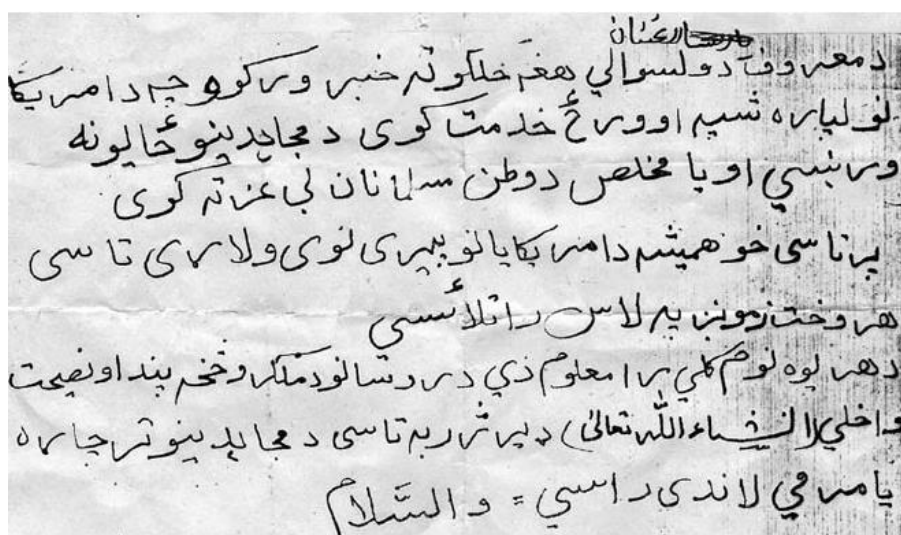 د معروف د ولسوالي هغه خلکو ته خبر ورکوو چه د امریکا
لو لپاره شپه او ورځ خدمت کوی د مجاهدینو ځایونه
ور ښسي او یا مخلص د وطن مسلمانان بی عزته کوی
پر تاسی خو همیشه د امریکایانو بیبری نوی ولاړی تاسی
هر وخت زمونږ په لاس راتلائسی
د هر یوه نوم کلي را معلوم دي د روستانو د ملګرو څخه پند او نصیحت
واخلي (انشاء الله تعالی) ډیر ژر به تاسی د مجاهدینو تر چاړه
یا مرمي لاندی راسي = والسلام